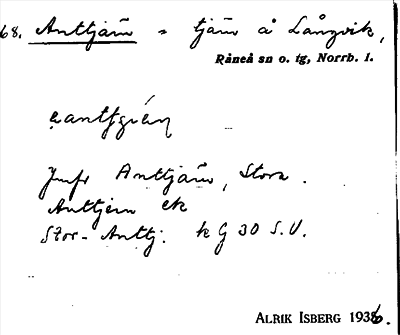 68. Anttjärn = tjärn å Långvik,
Råneå sn o. tg, Norrb. l.
Jmfr Anttjärn, Stora.
Anttjern ek
Stor-Anttj. k G 30 S.V.
ALRIK ISBERG 1936.